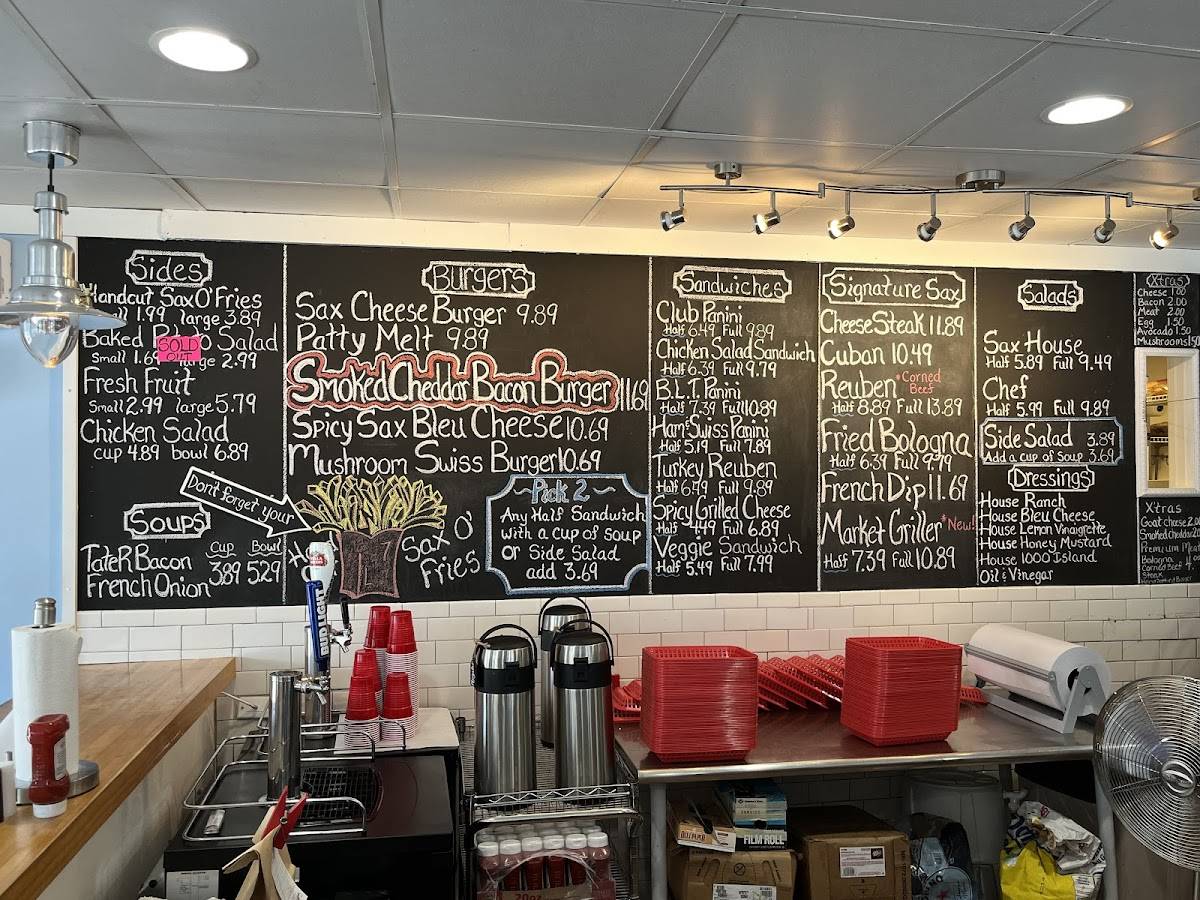 Sides
Handcut Sax O' Fries
small 1.99 large 3.89
Baked Potato Salad
SOLD
OUT
small 1.69 large 2.99
Fresh Fruit
small 2.99 large 5.79
Chicken Salad
cup 4.89 bowl 6.89
Soups
Cup Bowl
Tate R Bacon
French Onion 3.89 5.29
Burgers
Sax Cheese Burger 9.89
Patty Melt 9.89
Smoked Cheddar Bacon Burger 11.69
Spicy Sax Bleu Cheese 10.69
Mushroom Swiss Burger 10.69
Don't forget your
Sax O'
Fries
Pick 2
Any Half Sandwich
with a cup of soup
or Side Salad
add 3.69
Sandwiches
Club Panini
Half 6.49 Full 9.89
Chicken Salad Sandwich
Half 6.39 Full 9.79
B.L.T. Panini
Half 7.39 Full 10.89
Ham & Swiss Panini
Half 5.19 Full 7.89
Turkey Reuben
Half 6.49 Full 9.89
Spicy Grilled Cheese
Half 4.49 Full 6.89
Veggie Sandwich
Half 5.49 Full 7.99
Signature Sax
Cheese Steak 11.89
Cuban 10.49
Reuben *Corned
Beef
Half 8.89 Full 13.89
Fried Bologna
Half 6.39 Full 9.79
French Dip 11.69
Market Griller *New!
Half 7.39 Full 10.89
Salads
Sax House
Half 5.89 Full 9.49
Chef
Half 5.99 Full 9.89
Side Salad 3.89
Add a cup of Soup 3.69
Dressings
House Ranch
House Bleu Cheese
House Lemon Vinaigrette
House Honey Mustard
House 1000 Island
Oil & Vinegar
Xtras
Cheese 1.00
Bacon 2.00
Meat 2.00
Egg 1.50
Avocado 1.50
Mushrooms 1.50
Xtras
Goat cheese
Smoked cheddar
Premium Meat
Bologna
Corned Beef
Steak
FILM ROLL